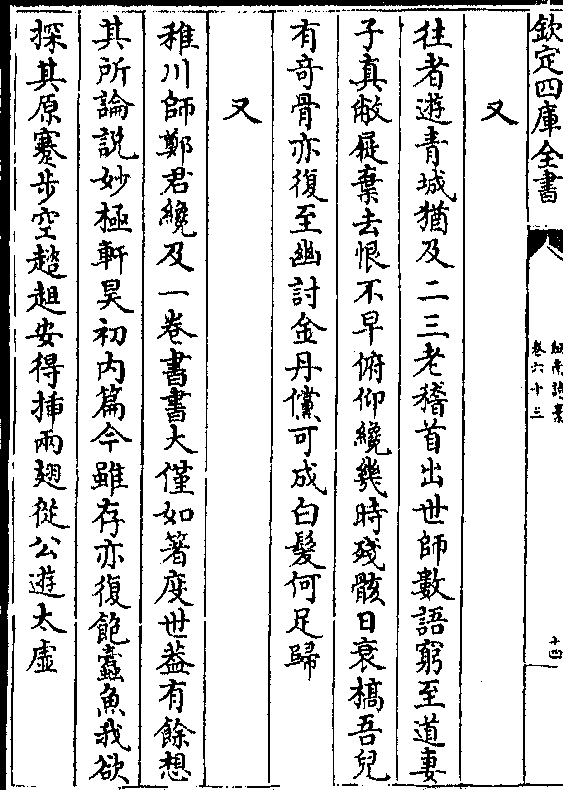 欽定四庫全書
劍南詩藁
卷六十三
十四
又
往者遊青城猶及二三老稽首出世師數語窮至道妻
子真敝屣棄去恨不早俯仰纔幾時殘骸日衰槁吾兒
有奇骨亦復至幽討金丹儻可成白髮何足歸
又
稚川師鄭君纔及一卷書書大僅如箸度世益有餘想
其所論說妙極軒昊初内篇今雖存亦復飽蠹魚我欲
探其原蹇步空趦趄安得揷兩翅從公遊太虛